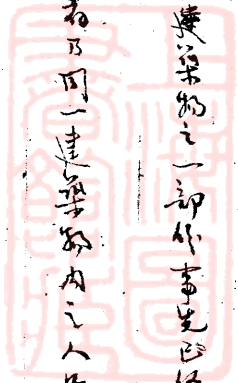 建築物之一部作事先
者乃同一建築物内之人